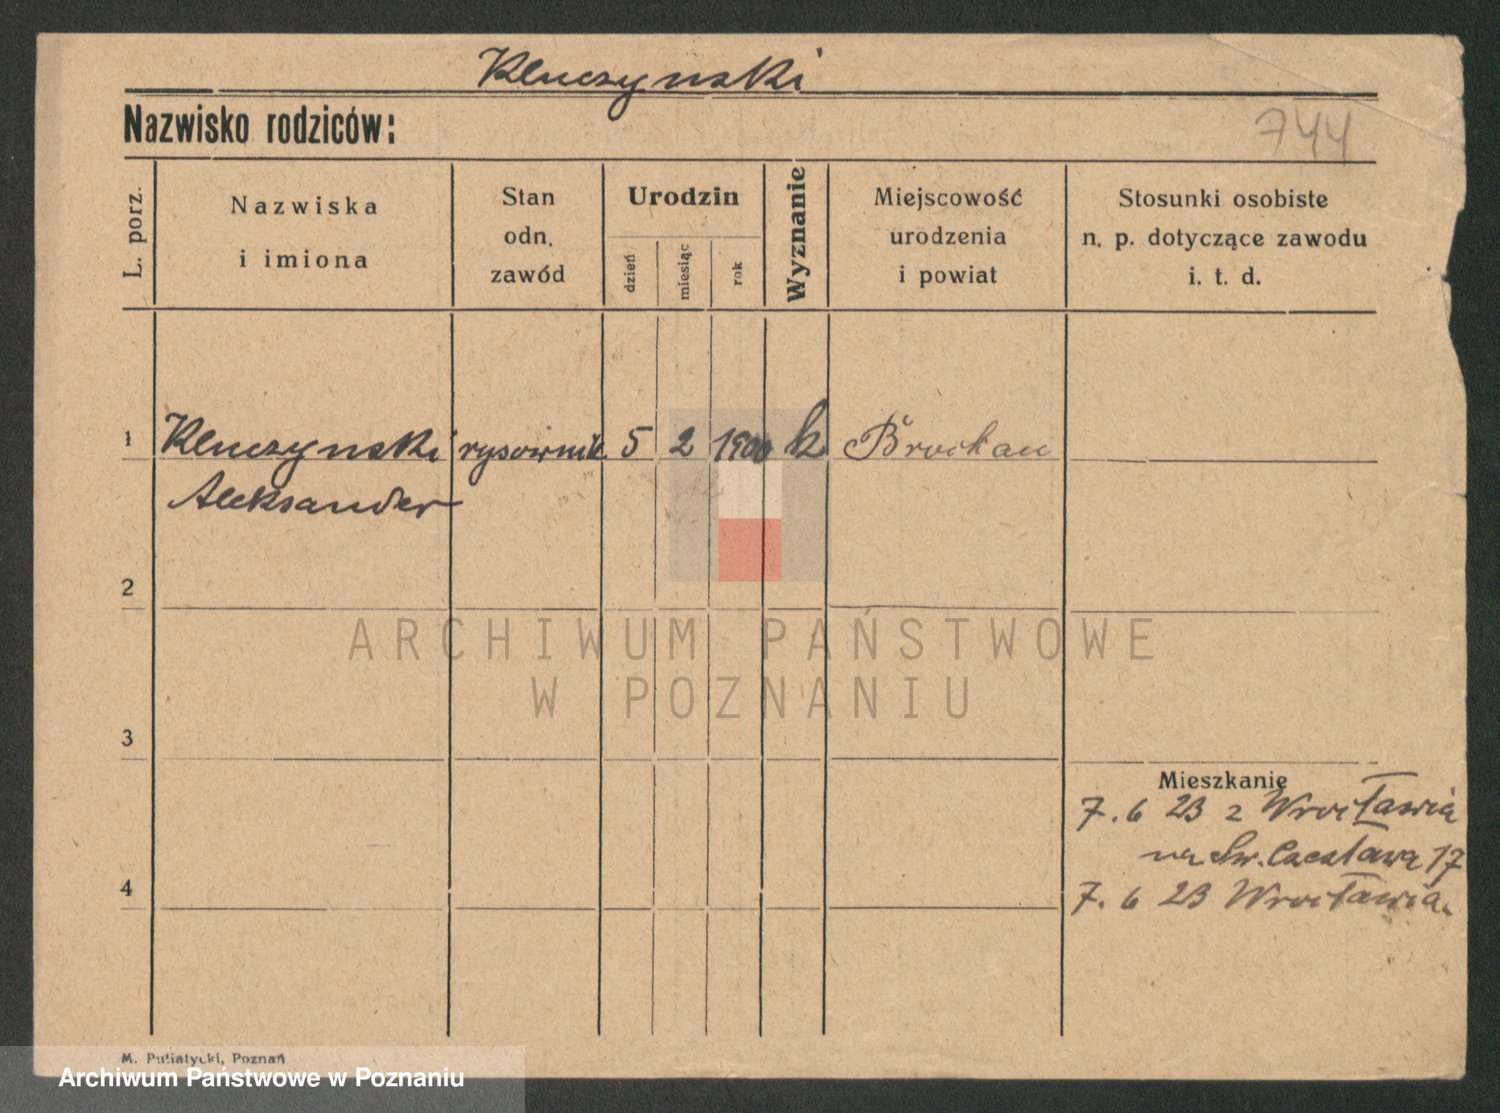 Kluczynski
Nazwisko rodziców:
744
L. porz.
Nazwiska
i imiona
Stan
odn.
zawód
Urodzin
dzień
miesiąc
rok
Wyznanie
Miejscowość
urodzenia
i powiat
Stosunki osobiste
n. p. dotyczące zawodu
i. t. d.
1 Kluczynski rysownik 5 2 1900 k Brockau
Aleksander
2
ARCHIWUM PAŃSTWOWE
W POZNANIU
3
Mieszkanie
7. 6 23 z Wrocławia
na Św. Czesława 17
4
7. 6 23 Wrocławia.
M. Putiatycki, Poznań
Archiwum Państwowe w Poznaniu